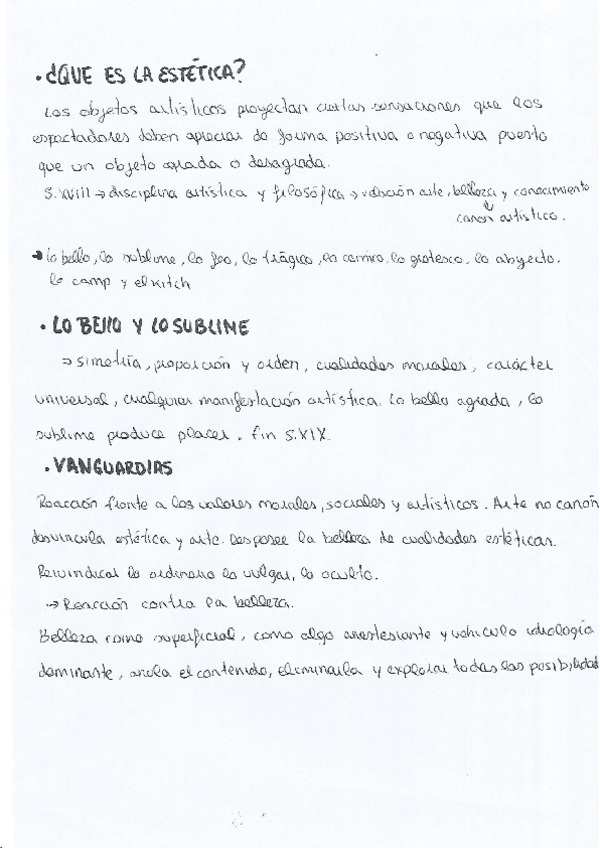 · ¿QUE ES LA ESTÉTICA?
Los objetos artísticos proyectan ciertas sensaciones que los
espectadores deben apreciar de forma positiva o negativa puesto
que un objeto agrada o desagrada.
S. XVIII → disciplina artística y filosófica → relación arte, belleza y conocimiento
↓
canon artístico.
→ lo bello, lo sublime, lo feo, lo trágico, lo comico, lo grotesco, lo abyecto.
lo camp y el kitch
· LO BELLO Y LO SUBLIME
→ simetría, proporción y orden, cualidades morales, carácter
universal, cualquier manifestación artística. Lo bello agrada, lo
sublime produce placer. fin S.XIX.
· VANGUARDIAS
Reacción frente a los valores morales, sociales y artísticos. Arte no canon
desvincula estética y arte. Desposee la belleza de cualidades estéticas.
Reivindicar lo ordinario lo vulgar, lo oculto.
→ Reacción contra la belleza.
Belleza como superficial, como algo anestesiante y vehículo ideología
dominante, anula el contenido, eliminarla y explorar todas las posibilidad